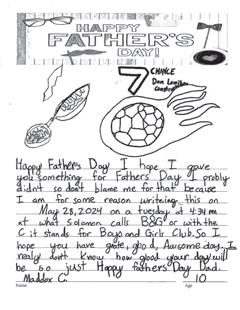 HAPPY
FATHER'S
DAY!
CHANCE
Happy Father's Day! I hope I gave
you something for Fathers Day I probly
didn't so dont blame me for that because
I am for some reason writeing this on
May 28, 2024 on a tuesday at 4:34 pm
at what Solomon calls B&G or with the
C it stands for Boys and Girls Club. So I
hope you have grate, good, Awsome day. I
really don't know how good your day will
be so just Happy fathers Day Dad.
Maddox C. 10
Name Age